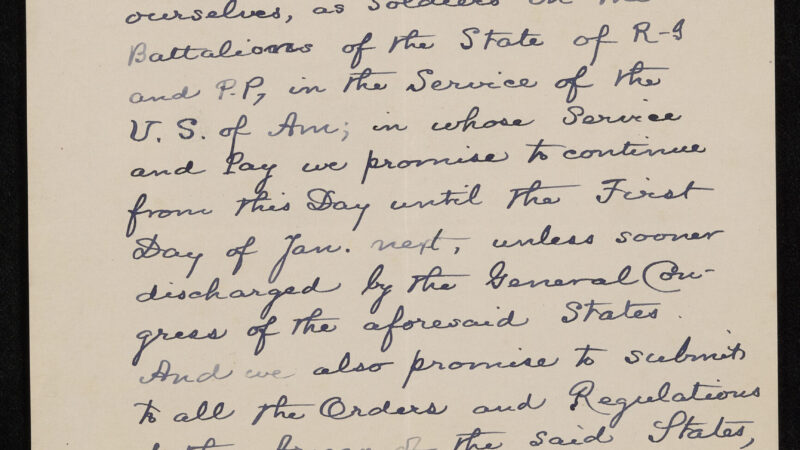 ourselves, as Soldiers in the
Battalions of the State of R-I
and P.P, in the Service of the
U. S. of Am; in whose Service
and Pay we promise to continue
from this Day until the First
Day of Jan. next, unless sooner
discharged by the General Con-
gress of the aforesaid States.
And we also promise to submit
to all the Orders and Regulations
of the the said States,